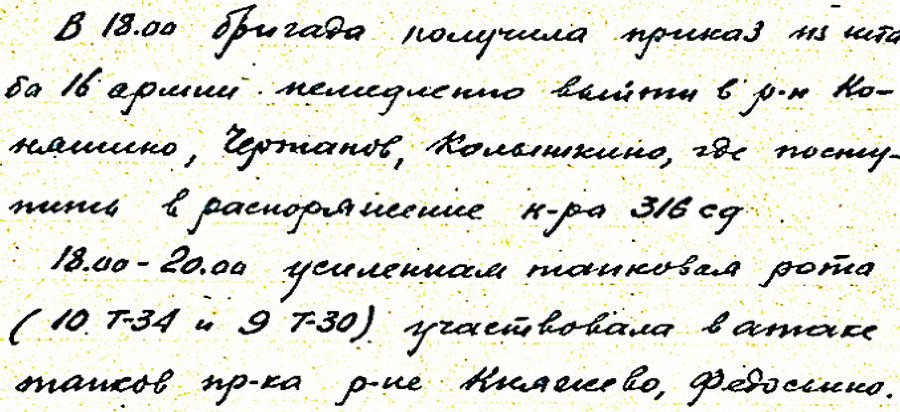 В 18.00 бригада получила приказ из шта
ба 16 армии немедленно выйти в р-н Ко-
няшино, Чертанов, Колышкино, где посту-
пить в распоряжение к-ра 316 сд
18.00-20.00 усиленная танковая рота
(10 Т-34 и 9 Т-30) участвовала в атаке
танков пр-ка р-не Княжево, Федосьино.